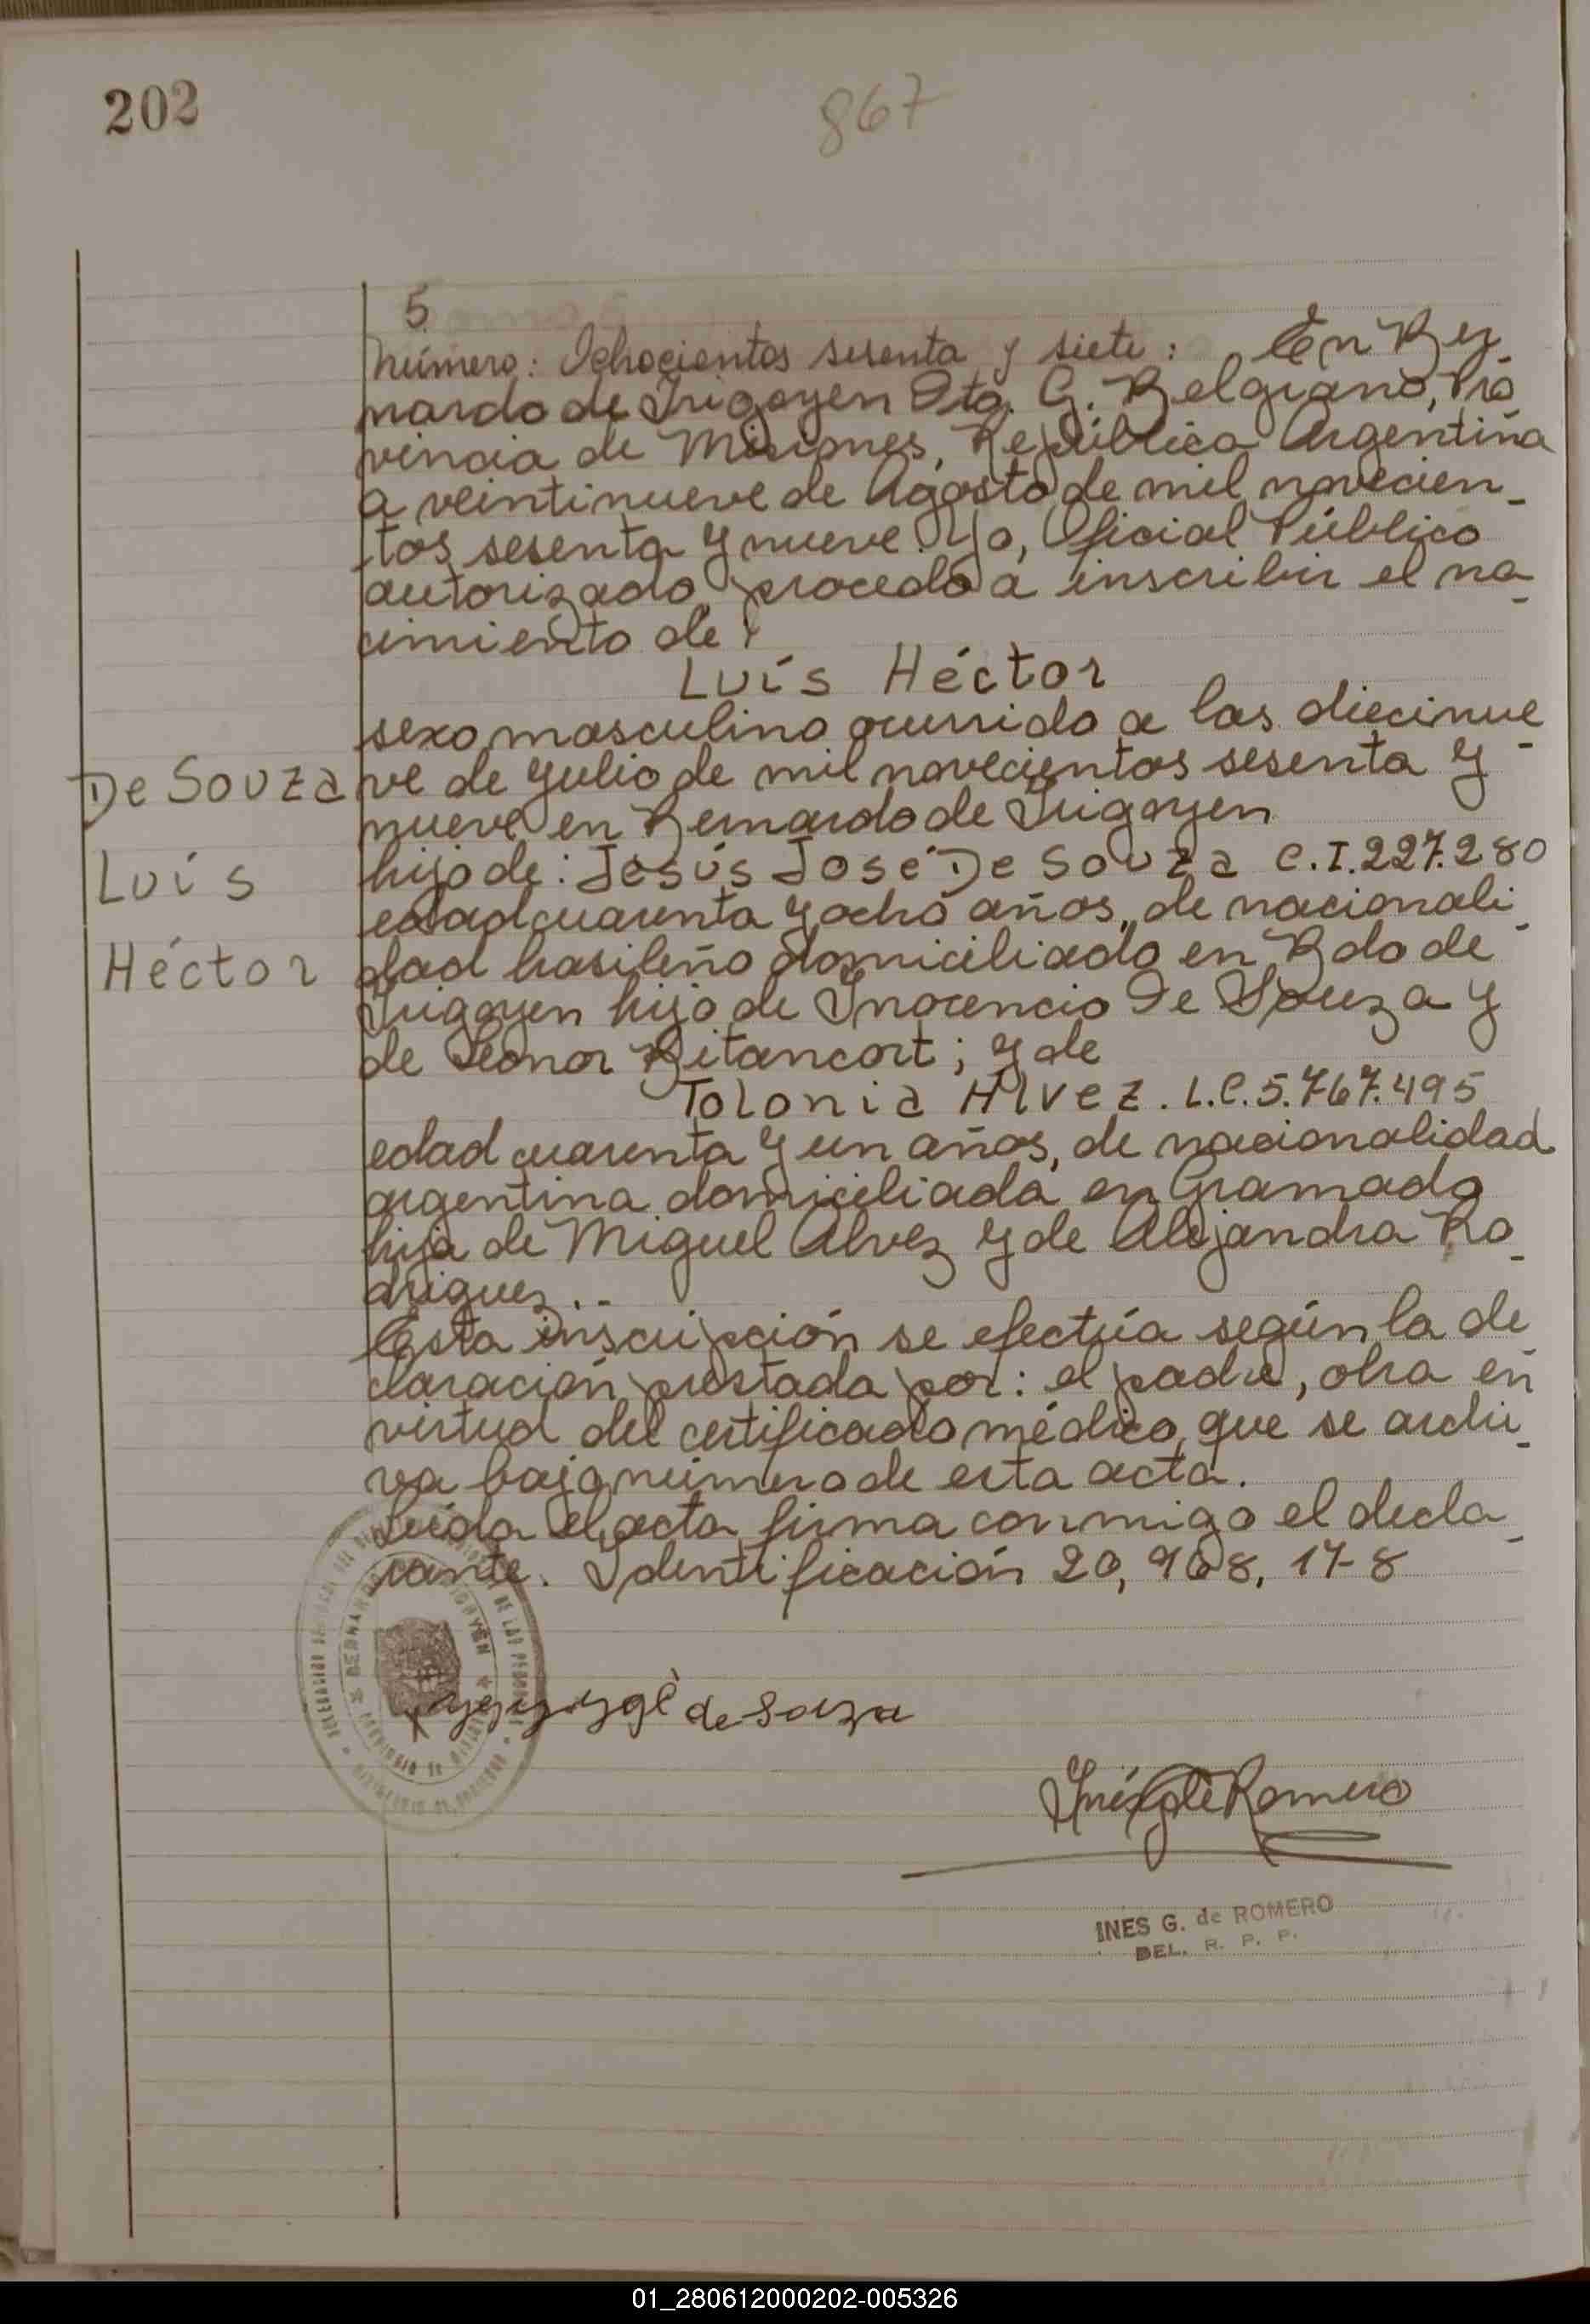 202
867
5
Número: Ochocientos sesenta y siete: En Ber
nardo de Irigoyen Dto. G. Belgrano, Pro
vincia de Misiones, República Argentina
a veintinueve de Agosto de mil novecien_
tos sesenta y nueve. Yo, Oficial Público
autorizado procedo a inscribir el na_
cimiento de:
Luís Héctor
sexo masculino ocurrido a las diecinue_
De Souza
ve de Julio de mil novecientos sesenta y
nueve en Bernardo de Irigoyen
Luís
hijo de: Jesús José De Souza C.I.227.280
edad cuarenta y ocho años, de nacionali_
Héctor
dad brasileño domiciliado en Bdo de
Irigoyen hijo de Inocencio De Souza y
de Leonor Bitancort; y de
Tolonia Alvez. L.C.5.767.495
edad cuarenta y un años, de nacionalidad
argentina domiciliada en Gramado
hija de Miguel Alvez y de Alejandra Ro_
driguez..-
Esta inscripción se efectúa según la de
claración prestada por: el padre, obra en
virtud del certificado médico, que se archi_
va bajo número de esta acta.
Leída el acta firma conmigo el decla_
rante. Identificación 20,968,178
de Souza
Inés G de Romero
INES G. de ROMERO
DEL. R. P. P.
01_280612000202-005326